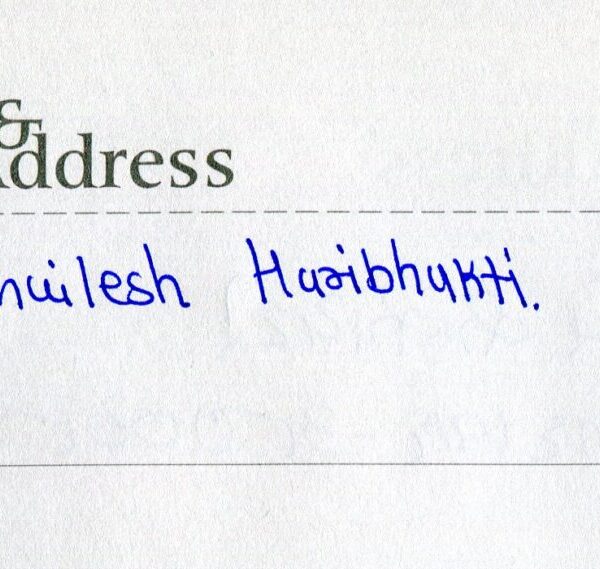 &
ddress
hailesh Haribhakti.